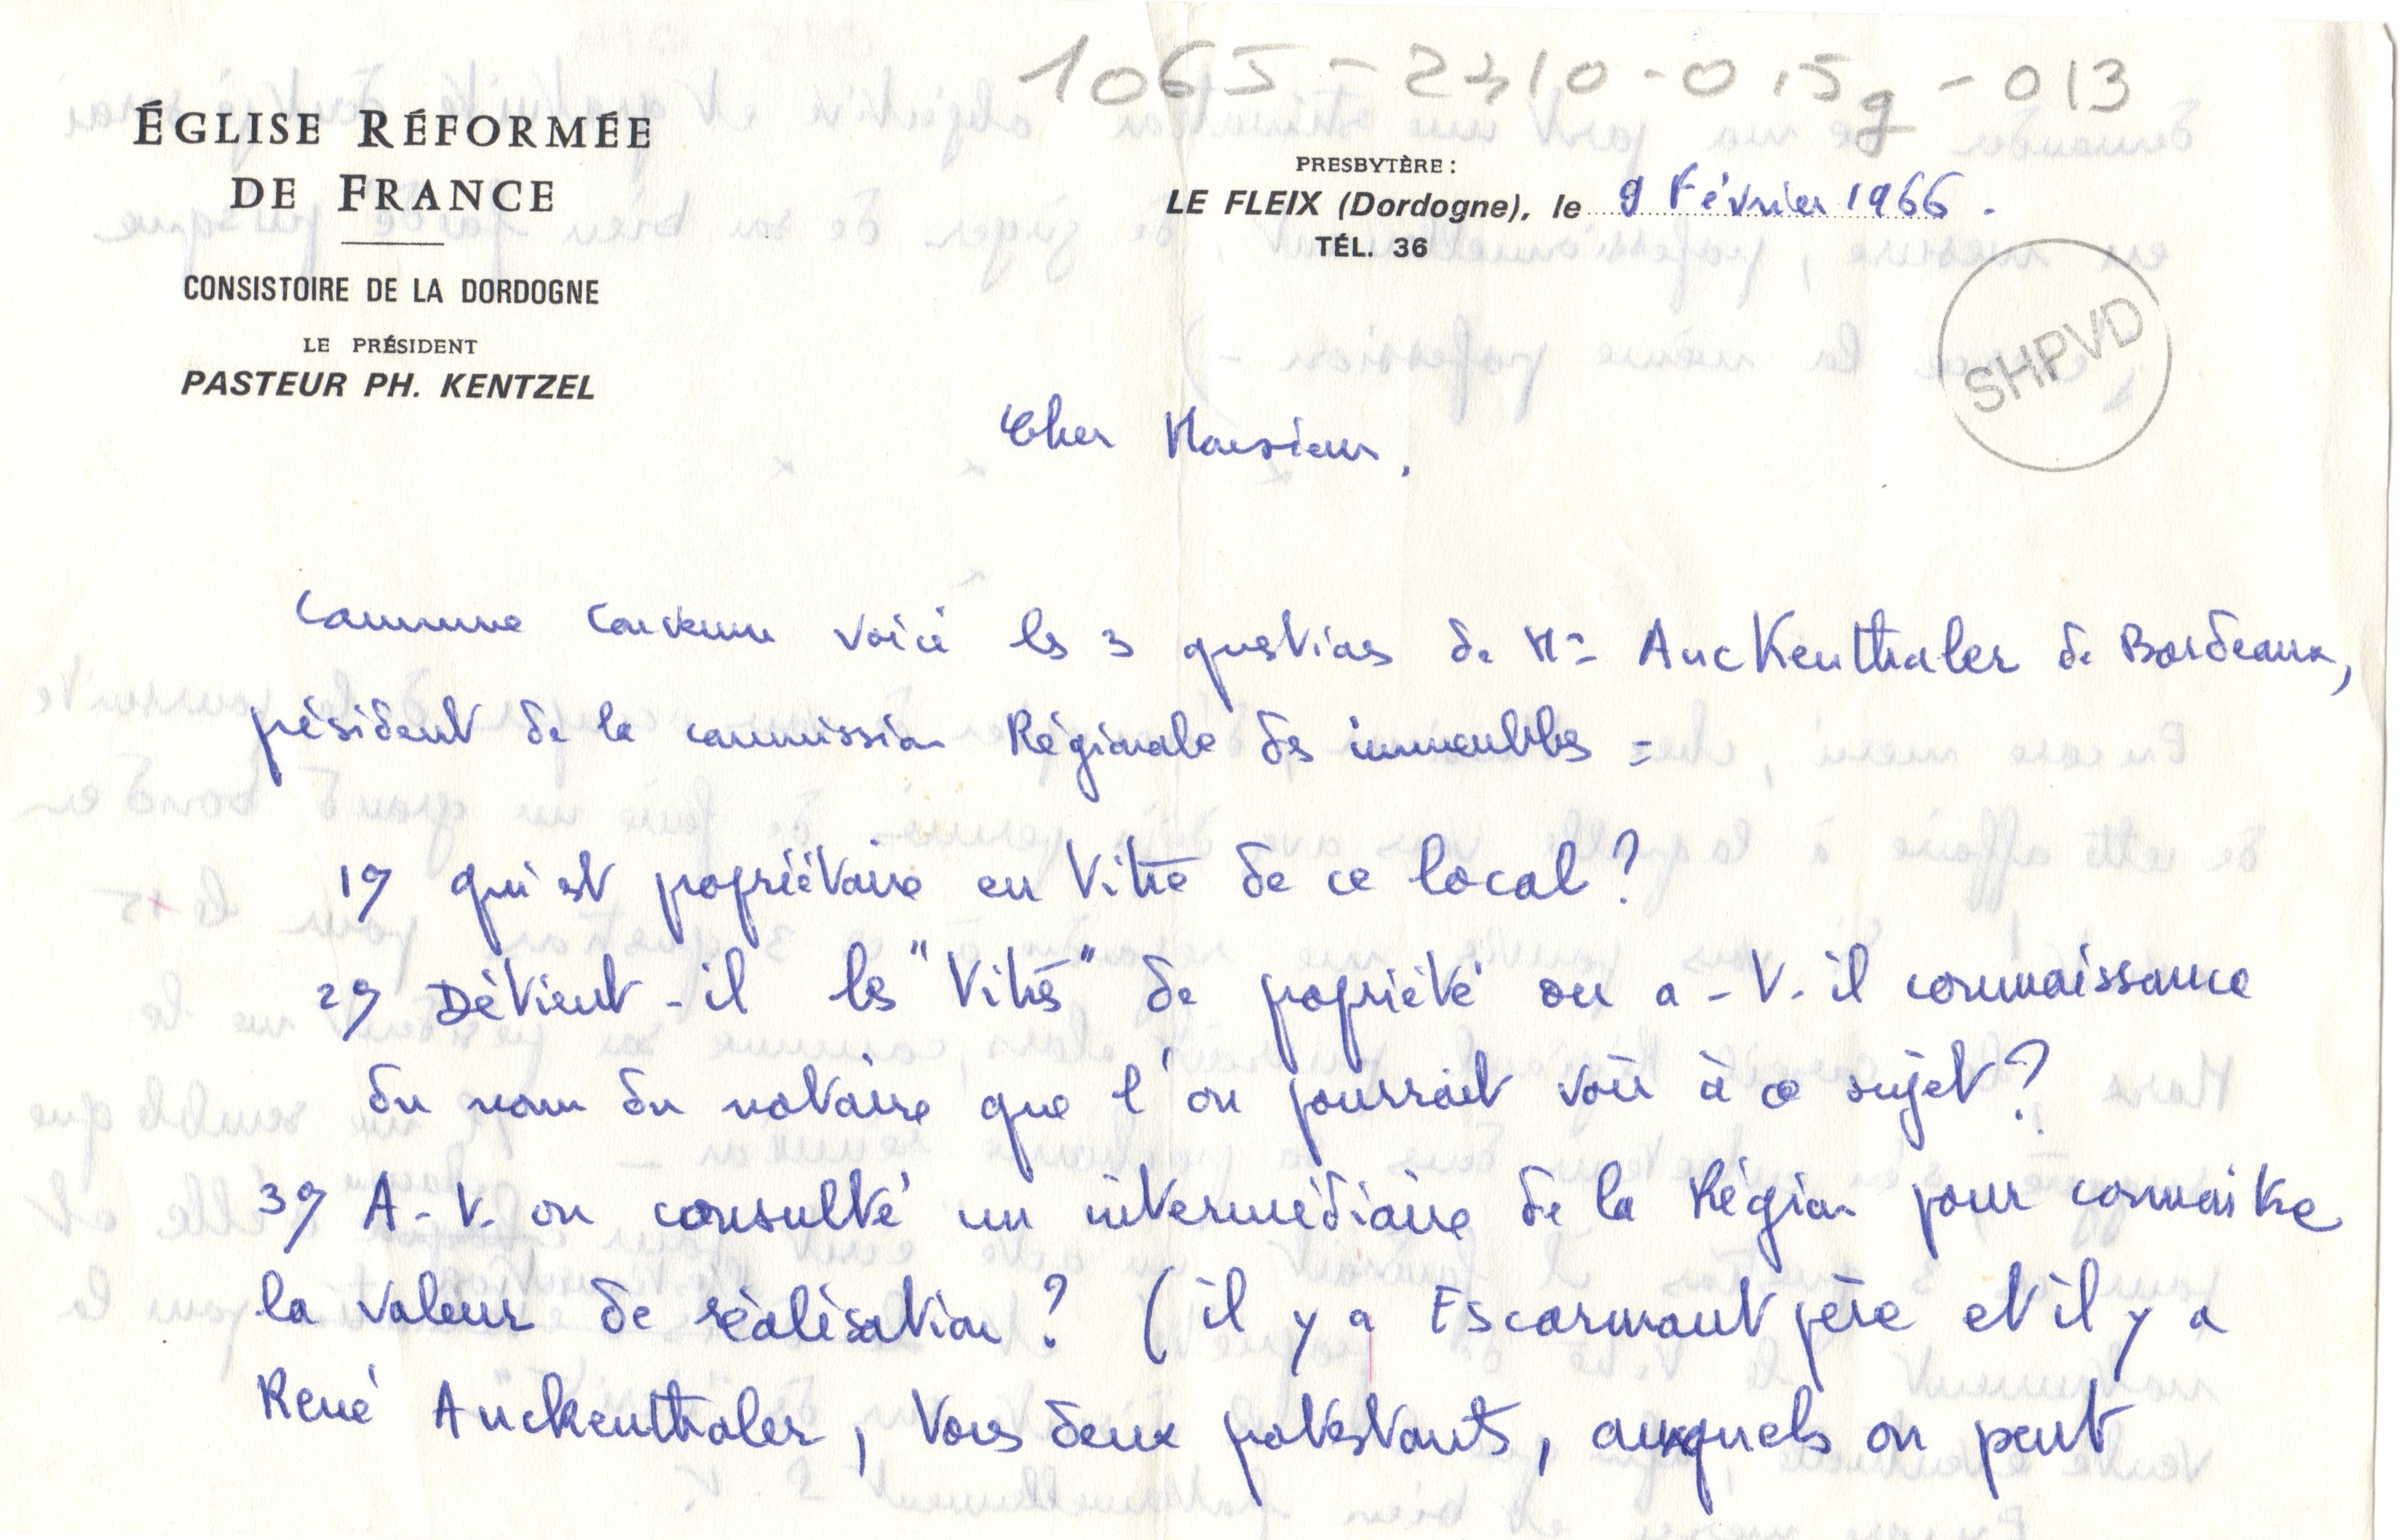 1065-2310-015g-013
ÉGLISE RÉFORMÉE
DE FRANCE
CONSISTOIRE DE LA DORDOGNE
LE PRÉSIDENT
PASTEUR PH. KENTZEL
PRESBYTÈRE :
LE FLEIX (Dordogne), le 9 Février 1966.
TÉL. 36
SHPVD
Cher Monsieur,
Comme convenu voici les 3 questions de Mr Auckenthaler de Bordeaux,
président de la commission Régionale des immeubles =
1°/ qui est propriétaire en titre de ce local ?
2°/ Détient-il les "titres" de propriété ou a-t-il connaissance
du nom du notaire que l'on pourrait voir à ce sujet ?
3°/ A-t-on consulté un intermédiaire de la Région pour connaitre
la valeur de réalisation ? (il y a Escarmant père et il y a
René Auckenthaler, tous deux protestants, auxquels on peut